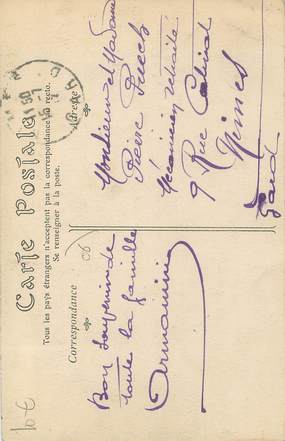 Carte Postale
Tous les pays étrangers n'acceptent pas la correspondance au recto.
Se renseigner à la poste.
Correspondance
Bon souvenir de
toute la famille
Adresse
Monsieur et Madame
Pierre Puech
Mécanicien retraité
9 Rue
Nîmes
Gard